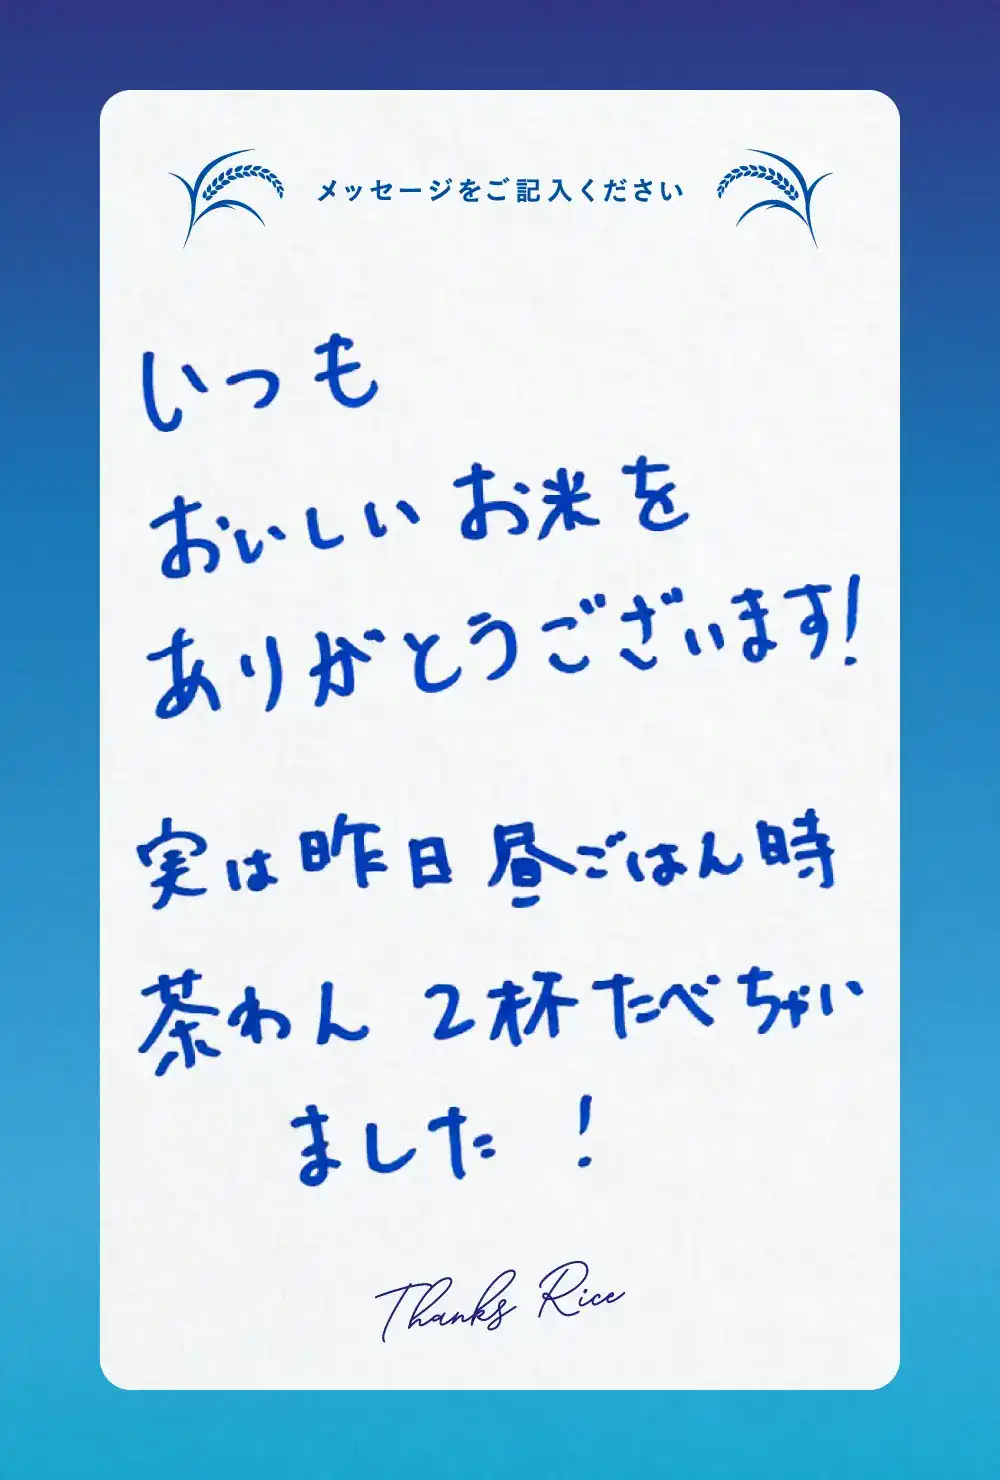 メッセージをご記入ください
いつも
おいしいお米を
ありがとうございます!
実は昨日昼ごはん時
茶わん 2杯たべちゃい
ました !
Thanks Rice